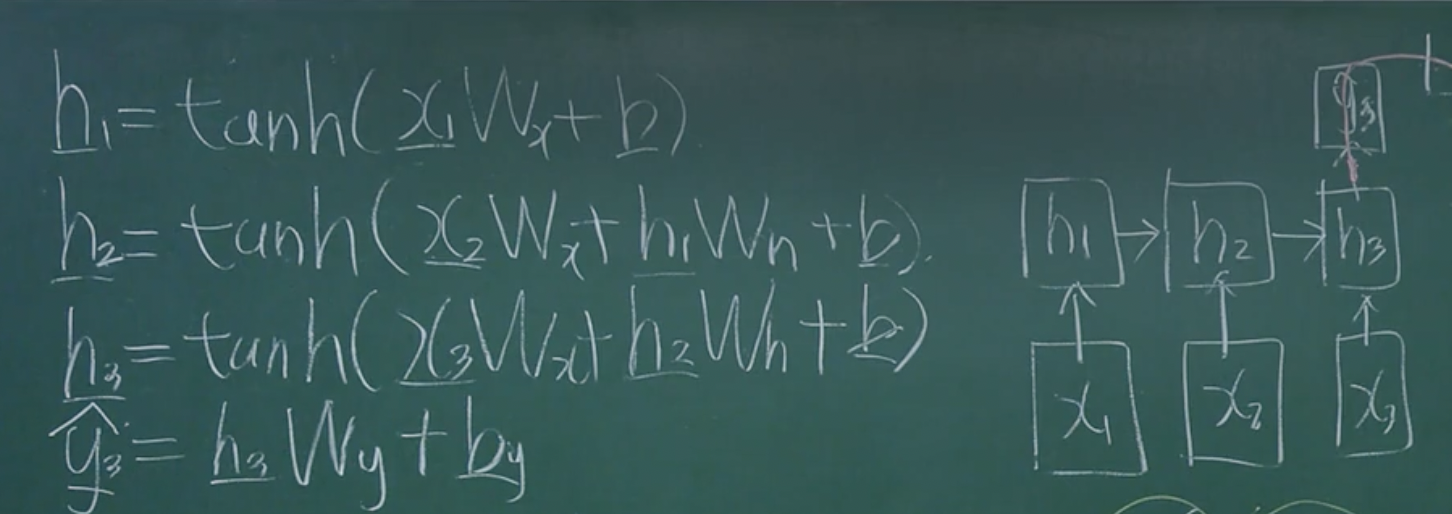 h₁ = tanh(x₁Wₓ + b)
h₂ = tanh(x₂Wₓ + h₁Wₕ + b).
h₃ = tanh(x₃Wₓ + h₂Wₕ + b)
ŷ₃ = h₃Wy + by
y₃
h₁ → h₂ → h₃
x₁ x₂ x₃